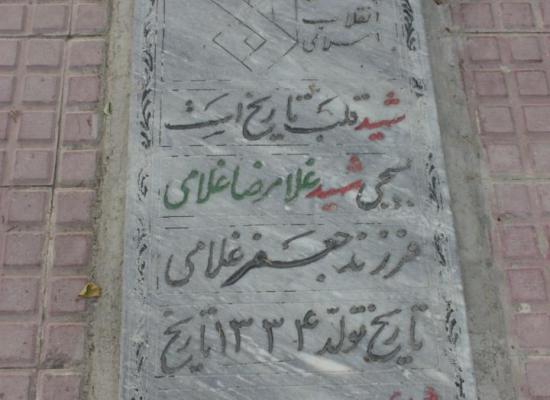 انقلاب
اسلامی
شهید قلب تاریخ است
بسیجی شهید غلامرضا غلامی
فرزند جعفر غلامی
تاریخ تولد ۱۳۳۴ تاریخ